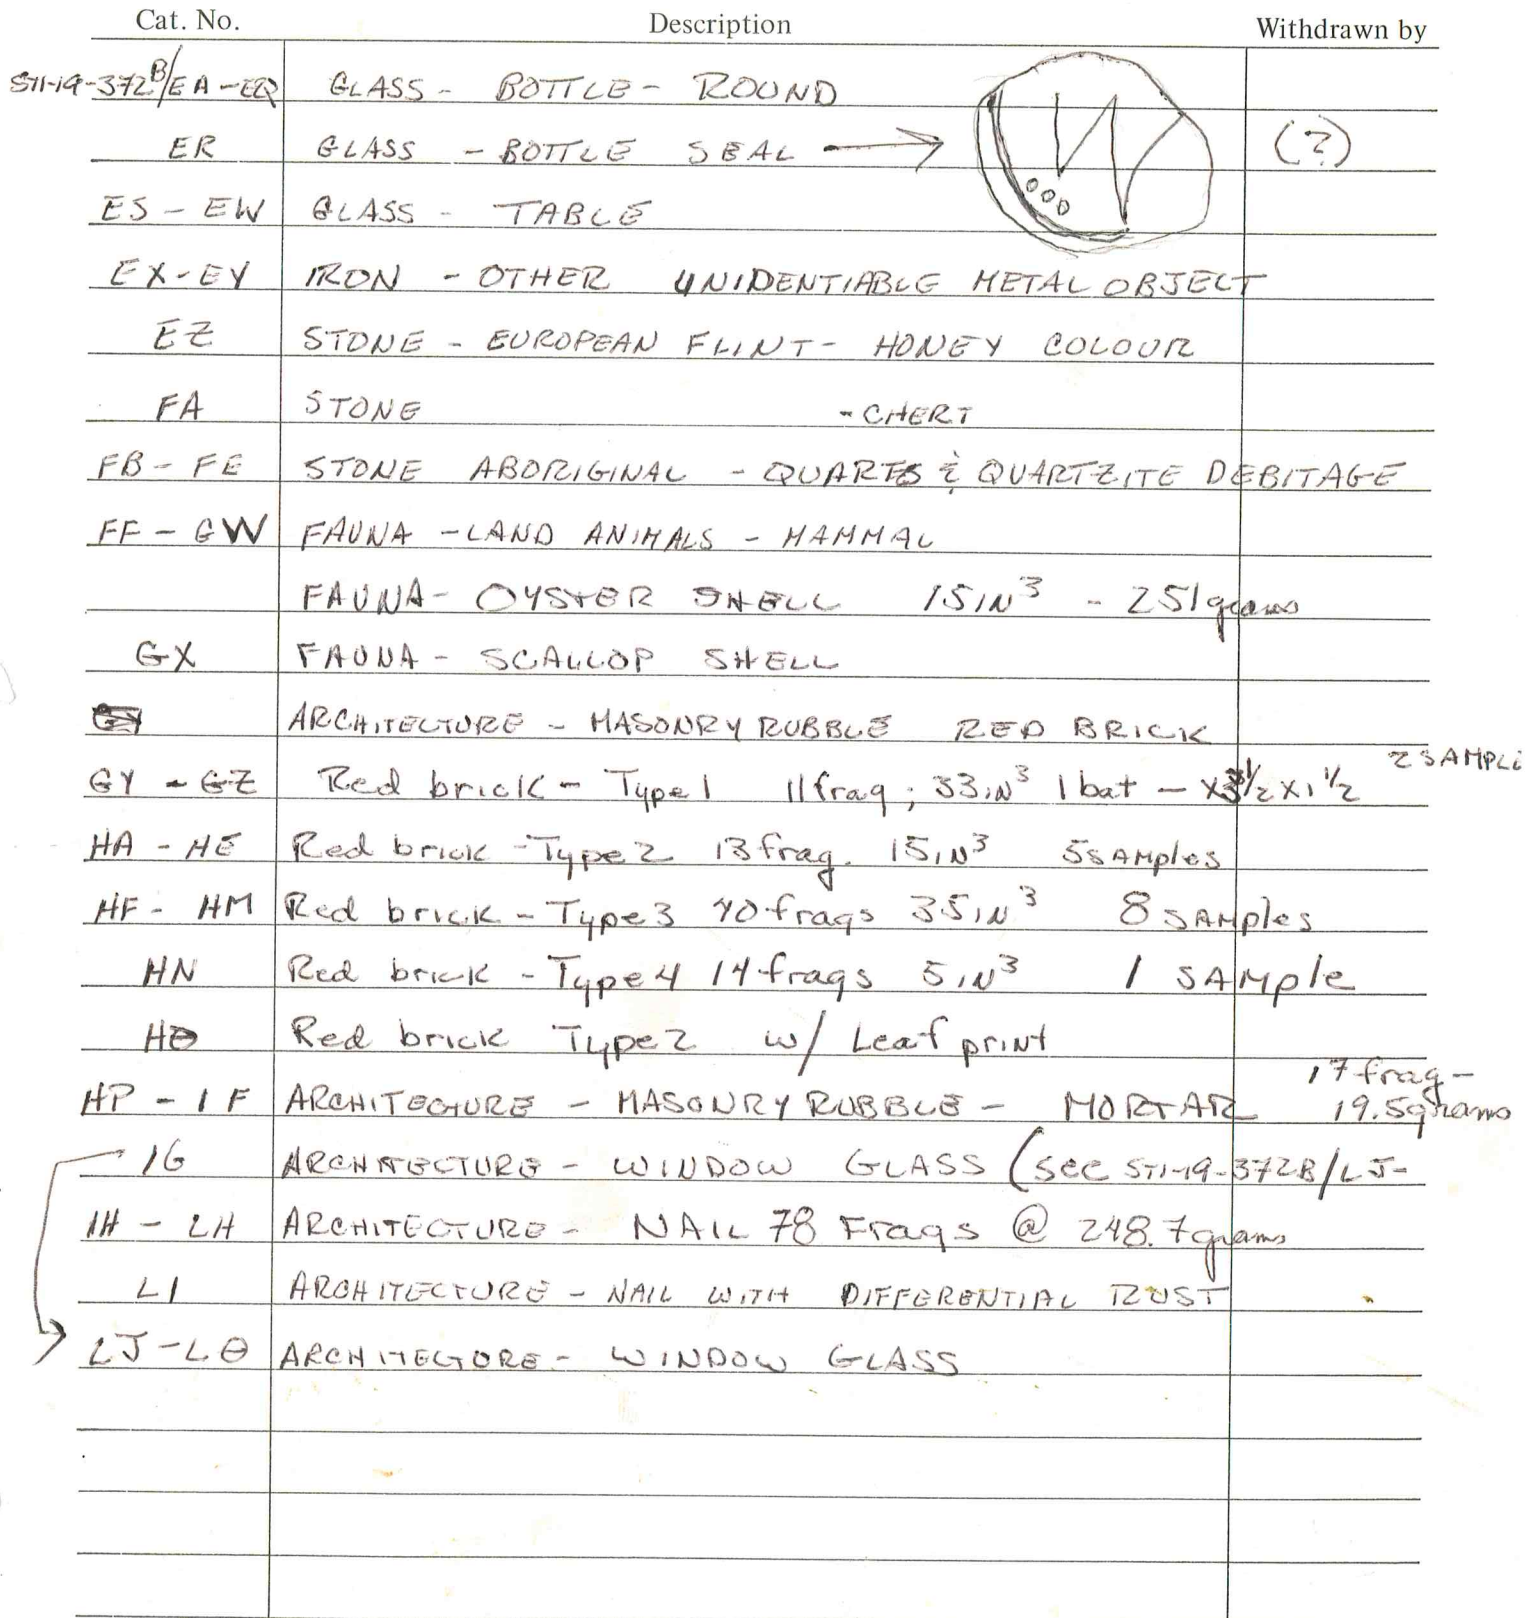 Cat. No. Description Withdrawn by
ST1-19-372B/EA-EQ GLASS - BOTTLE - ROUND
ER GLASS - BOTTLE SEAL → (?)
ES - EW GLASS - TABLE
EX-EY IRON - OTHER UNIDENTIABLE METAL OBJECT
EZ STONE - EUROPEAN FLINT - HONEY COLOUR
FA STONE - CHERT
FB - FE STONE ABORIGINAL - QUARTS & QUARTZITE DEBITAGE
FF - GW FAUNA - LAND ANIMALS - MAMMAL
FAUNA - OYSTER SHELL 15IN³ - 251grams
GX FAUNA - SCALLOP SHELL
ARCHITECTURE - MASONRY RUBBLE RED BRICK
GY - GZ Red brick - Type 1 11frag; 33IN³ 1 bat - x3½ x 1½ 2 SAMPLE
HA - HE Red brick - Type 2 13frag. 15IN³ 5 SAMples
HF - HM Red brick - Type 3 40frags 35IN³ 8 SAMples
HN Red brick - Type 4 14frags 5IN³ 1 SAMple
HO Red brick Type 2 w/ Leaf print
HP - IF ARCHITECTURE - MASONRY RUBBLE - MORTAR 17 frag - 19.5grams
IG ARCHITECTURE - WINDOW GLASS (see ST1-19-372B/LJ-
IH - LH ARCHITECTURE - NAIL 78 Frags @ 248.7grams
LI ARCHITECTURE - NAIL WITH DIFFERENTIAL RUST
LJ - LO ARCHITECTURE - WINDOW GLASS